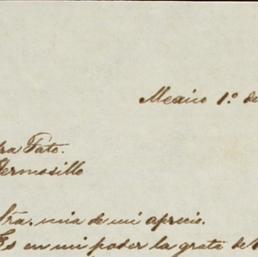 Mexico 1.º de
ra Fate.
Hermosillo
ra. mia de mi aprecio.
Es en mi poder la grata de